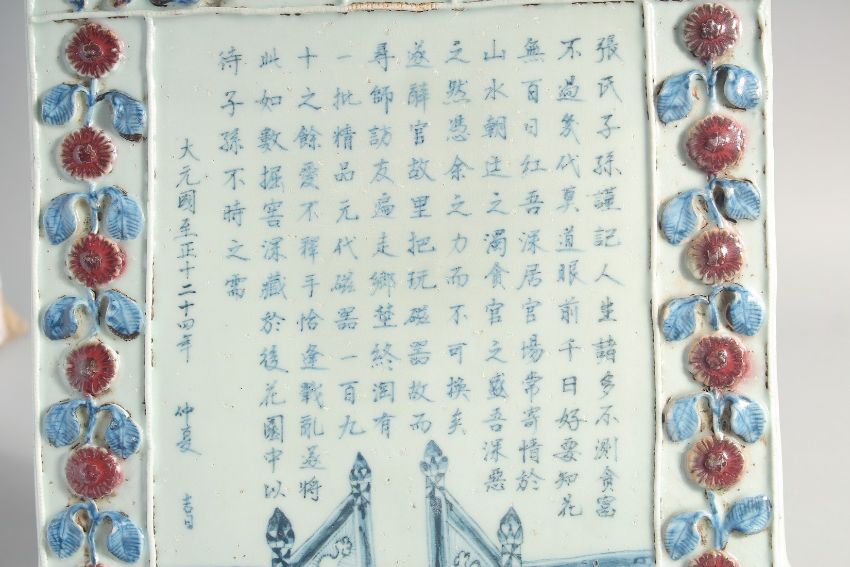 張氏子孫謹記人生諸多不測貪富
不過幾代莫道眼前千日好要知花
無百日紅吾深居官場常寄情於
山水朝廷之濁貪官之盛吾深惡
之然憑余之力而不可換矣
遂辭官故里把玩磁器故而
尋師訪友遍走鄉埜終淘有
一批精品元代磁器一百九
十之餘愛不釋手恰逢戰亂茲將
此如數掘窖深藏於後花園中以
待子孫不時之需
大元國至正十二十四年 仲夏 吉日